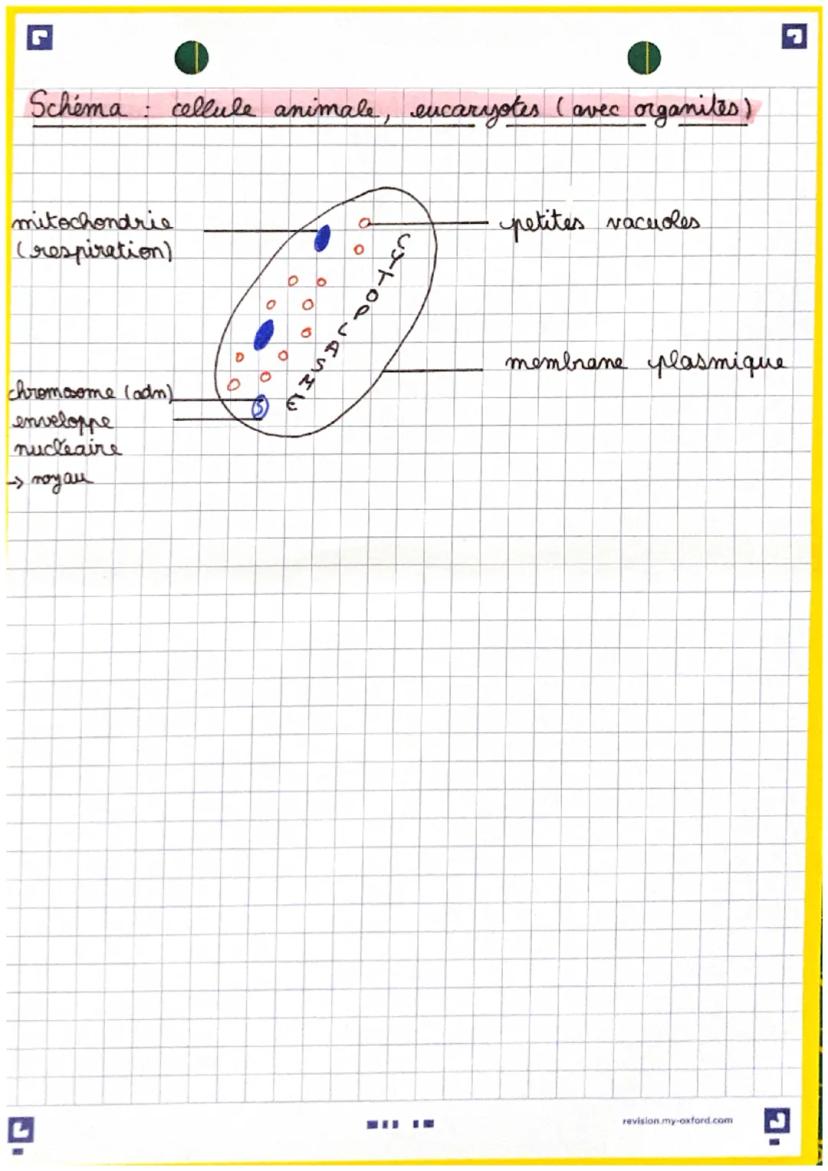 Schéma : cellule animale, eucaryotes (avec organites)
mitochondrie
(respiration)
petites vacuoles
CYTOPLASME
membrane plasmique
chromosome (adn)
enveloppe
nucléaire
→ noyau
revision.my-oxford.com